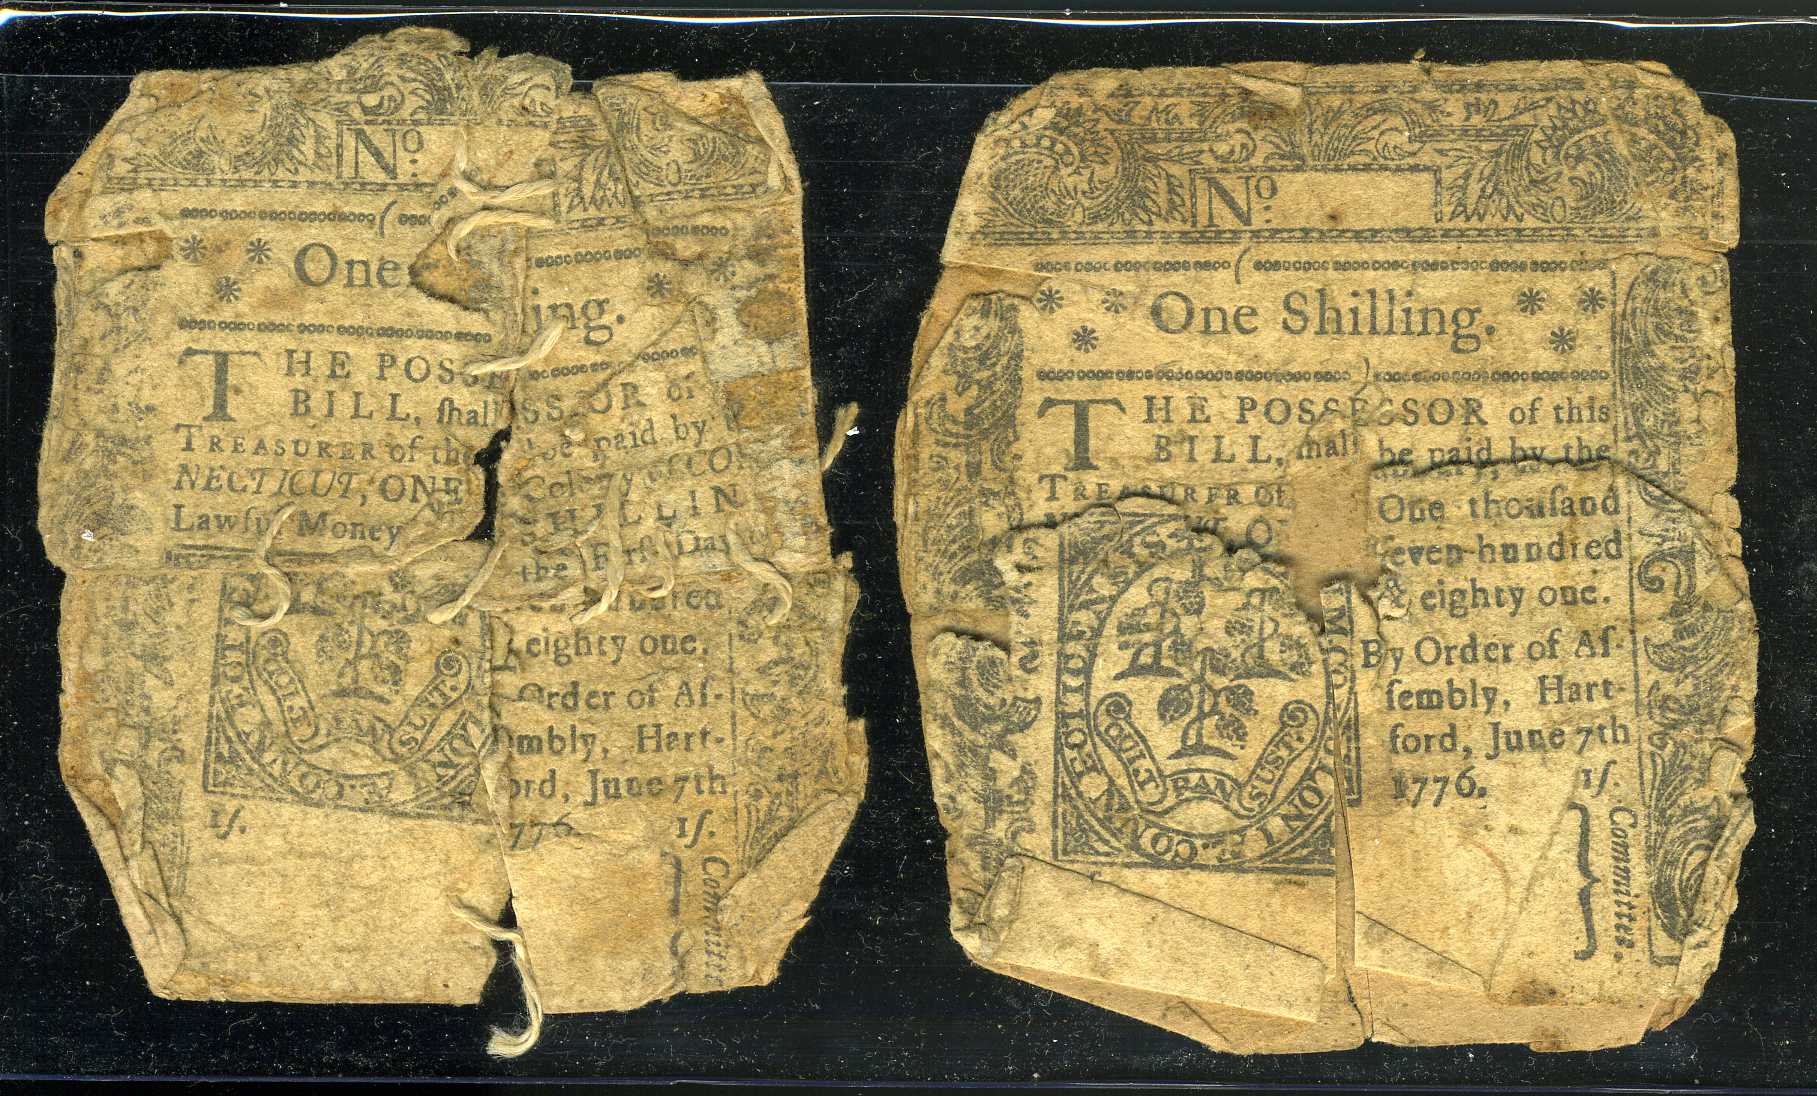 No
One ing.
THE POSSE SSOR of
BILL, ſhall be paid by
TREASURER of the Colony of CO
NECTICUT, ONE HILLIN
Lawful Money the Firſt Day
eighty one.
Order of Aſ-
mbly, Hart-
ord, June 7th
776. 1ſ.
1ſ.
QUI TRAN SUST.
Committee
No
One Shilling.
THE POSSESSOR of this
BILL, ſhall be paid by the
TREASURER of
One thouſand
ſeven hundred
& eighty one.
By Order of Aſ-
ſembly, Hart-
ford, June 7th
1776. 1ſ.
QUI TRAN SUST.
Committee.